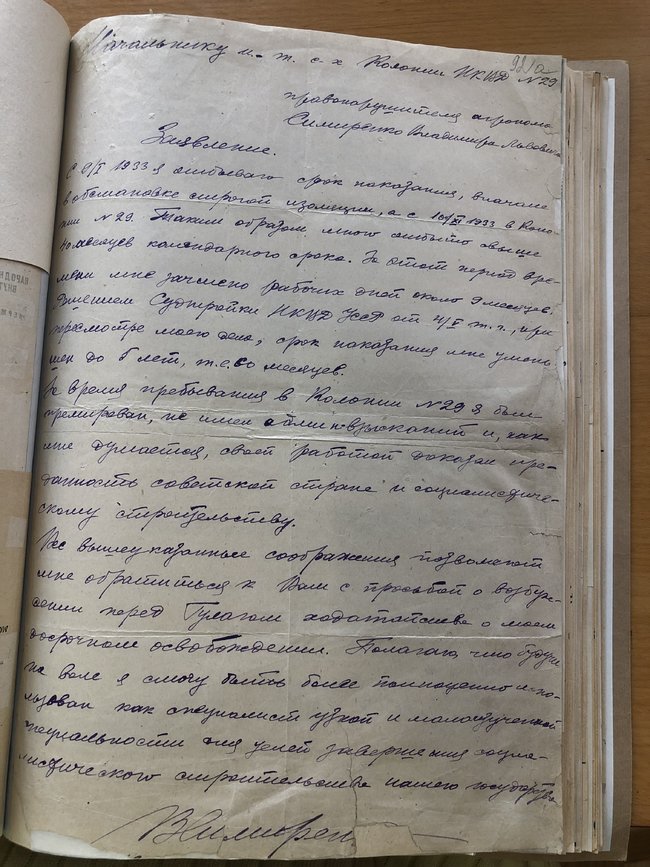 92/а
Начальнику и.-т. с-х Колонии НКВД №29
правонарушителя агронома
Симиренко Владимира Львовича
Заявление.
С 9/I 1933 я отбываю срок показания, вначале
в обстановке строгой изоляции, а с 10/XI 1933 в Коло-
нии №29. Таким образом мною отбыто свыше
месяцев календарного срока. За этот период вре-
мени мне зачтено рабочих дней около 9 месяцев.
Решением Судтройки НКВД УССР от 4/V т.г., при
пересмотре моего дела, срок показания мне умень-
шен до 5 лет, т.е. 60 месяцев.
За время пребывания в Колонии №29 я был
премирован, не имел административных взысканий и, как
мне думается, своей работой доказал пре-
данность советской стране и социалистиче-
скому строительству.
Все вышеуказанные соображения позволяют
мне обратиться к Вам с просьбой о возбуж-
дении перед Гулагом ходатайства о моем
досрочном освобождении. Полагаю, что будучи
на воле я смогу быть более полноценно испо-
льзован как специалист узкой и малоизученной
специальности для целей завершения социа-
листического строительства нашего государства
В Симирен